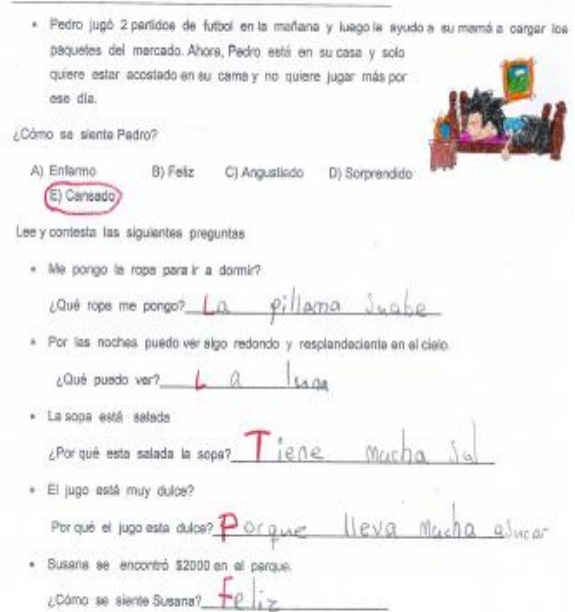 • Pedro jugó 2 partidos de futbol en la mañana y luego le ayudo a su mamá a cargar los
paquetes del mercado. Ahora, Pedro está en su casa y solo
quiere estar acostado en su cama y no quiere jugar más por
ese día.
¿Cómo se siente Pedro?
A) Enfermo B) Feliz C) Angustiado D) Sorprendido
E) Cansado
Lee y contesta las siguientes preguntas
• Me pongo la ropa para ir a dormir?
¿Qué ropa me pongo? La pillama Suabe
• Por las noches puedo ver algo redondo y resplandeciente en el cielo.
¿Qué puedo ver? La luna
• La sopa está salada
¿Por qué esta salada la sopa? Tiene mucha Sal
• El jugo está muy dulce?
Por qué el jugo esta dulce? Porque lleva Mucha asucar
• Susana se encontró $2000 en el parque.
¿Cómo se siente Susana? feliz